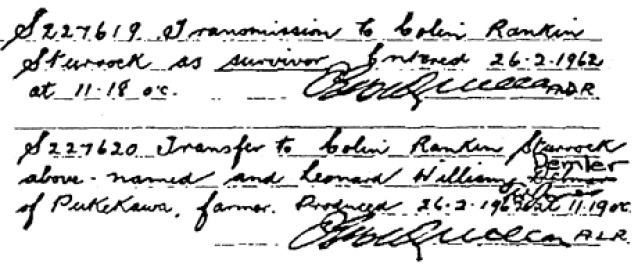 S227619 Transmission to Colin Rankin
Sturrock as survivor Entered 26.2.1962
at 11.18 oc.
A.L.R
S227620 Transfer to Colin Rankin Sturrock
above-named and Leonard William Demler
of Pukekawa, farmer. Produced 26.2.1962 at 11.19 oc
A.L.R.